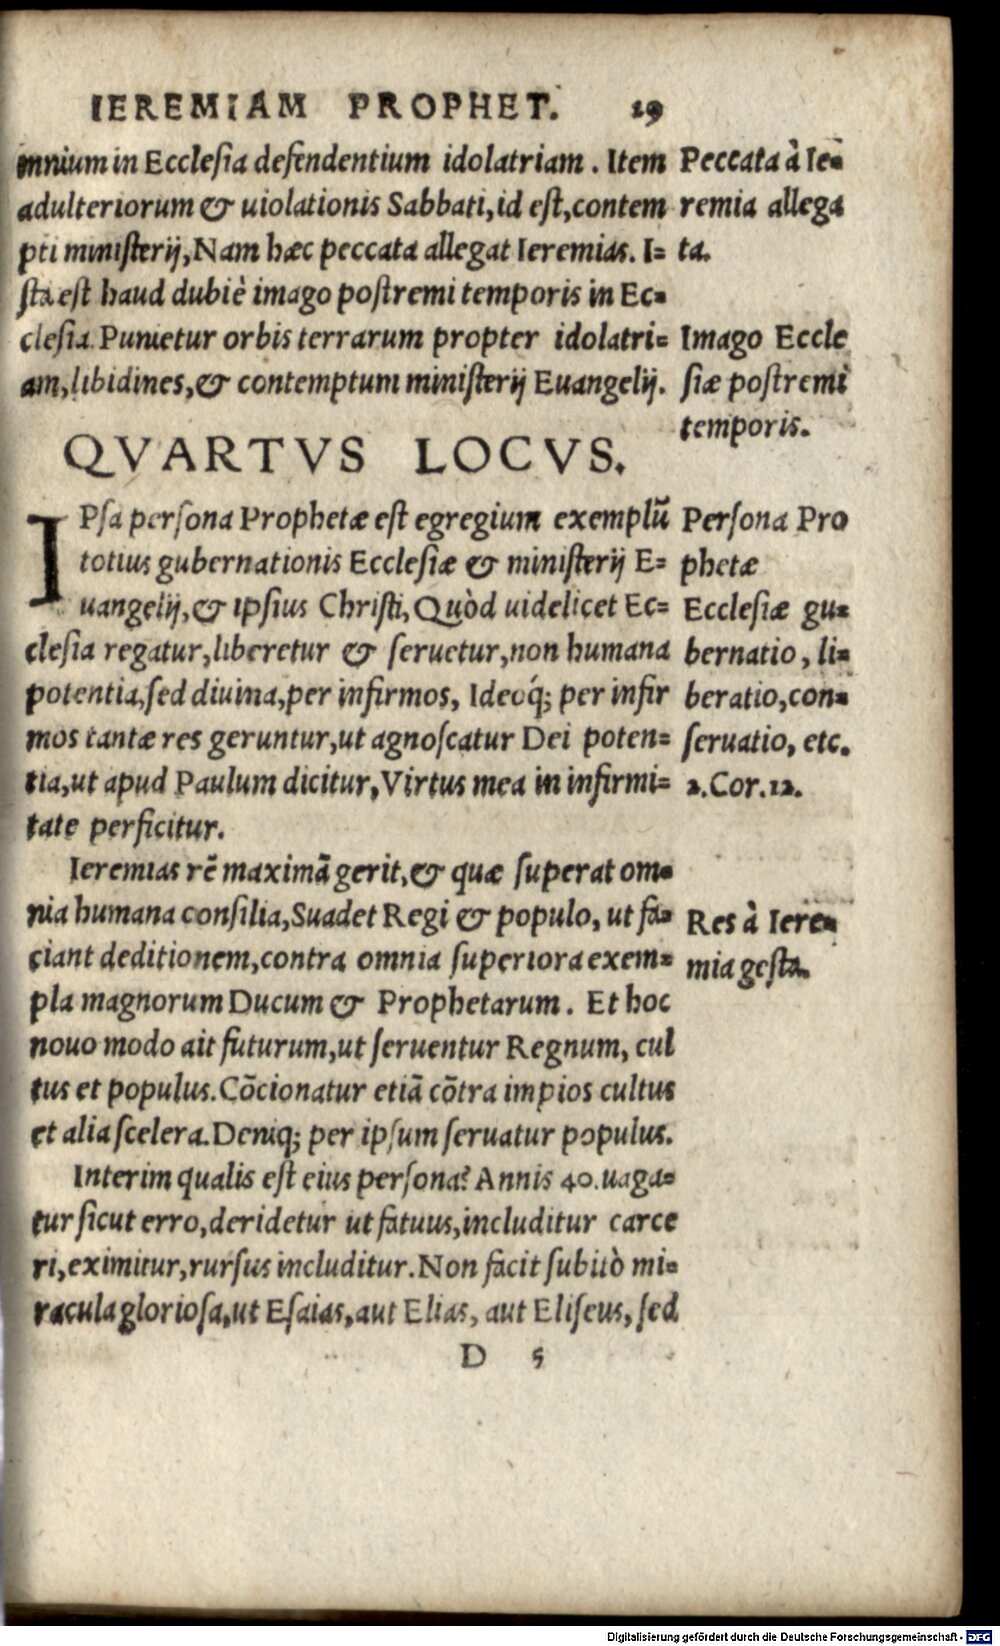 IEREMIAM PROPHET. 29
mnium in Ecclesia defendentium idolatriam. Item
adulteriorum & uiolationis Sabbati, id est, contem
pti ministerij, Nam hæc peccata allegat Ieremias. I=
sta est haud dubiè imago postremi temporis in Ec=
clesia. Punietur orbis terrarum propter idolatri=
am, libidines, & contemptum ministerij Euangelij.
Peccata à Ie=
remia allega
ta.
Imago Eccle
siæ postremi
temporis.
QVARTVS LOCVS.
IPsa persona Prophetæ est egregium exemplũ
totius gubernationis Ecclesiæ & ministerij E=
uangelij, & ipsius Christi, Quòd uidelicet Ec=
clesia regatur, liberetur & seruetur, non humana
potentia, sed diuina, per infirmos, Ideoq́; per infir
mos tantæ res geruntur, ut agnoscatur Dei poten=
tia, ut apud Paulum dicitur, Virtus mea in infirmi=
tate perficitur.
Persona Pro
phetæ
Ecclesiæ gu=
bernatio, li=
beratio, con=
seruatio, etc.
2. Cor. 12.
Ieremias rẽ maximã gerit, & quæ superat om=
nia humana consilia, Suadet Regi & populo, ut fa=
ciant deditionem, contra omnia superiora exem=
pla magnorum Ducum & Prophetarum. Et hoc
nouo modo ait futurum, ut seruentur Regnum, cul
tus et populus. Cõcionatur etiã cõtra impios cultus
et alia scelera. Deniq; per ipsum seruatur populus.
Res à Iere=
mia gesta.
Interim qualis est eius persona? Annis 40. uaga=
tur sicut erro, deridetur ut fatuus, includitur carce
ri, eximitur, rursus includitur. Non facit subitò mi=
racula gloriosa, ut Esaias, aut Elias, aut Eliseus, sed
D 5
Digitalisierung gefördert durch die Deutsche Forschungsgemeinschaft - DFG